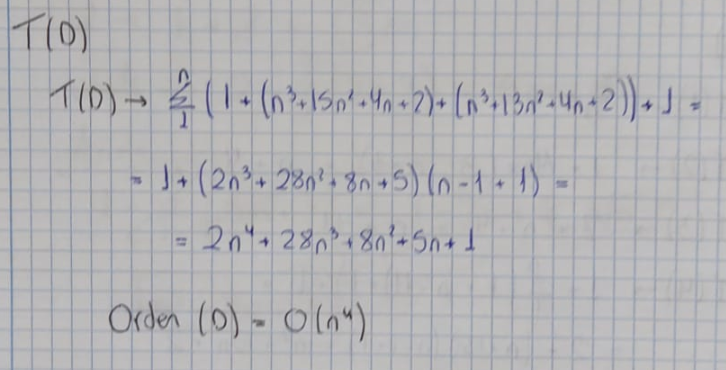 T(D)
T(D) → n Σ 1 (1 + (n³+15n²+4n+2)+(n³+13n²+4n+2))+1 =
= 1 + (2n³ + 28n² + 8n + 5) (n - 1 + 1) =
= 2n⁴ + 28n³ + 8n² + 5n + 1
Orden (D) = O(n⁴)